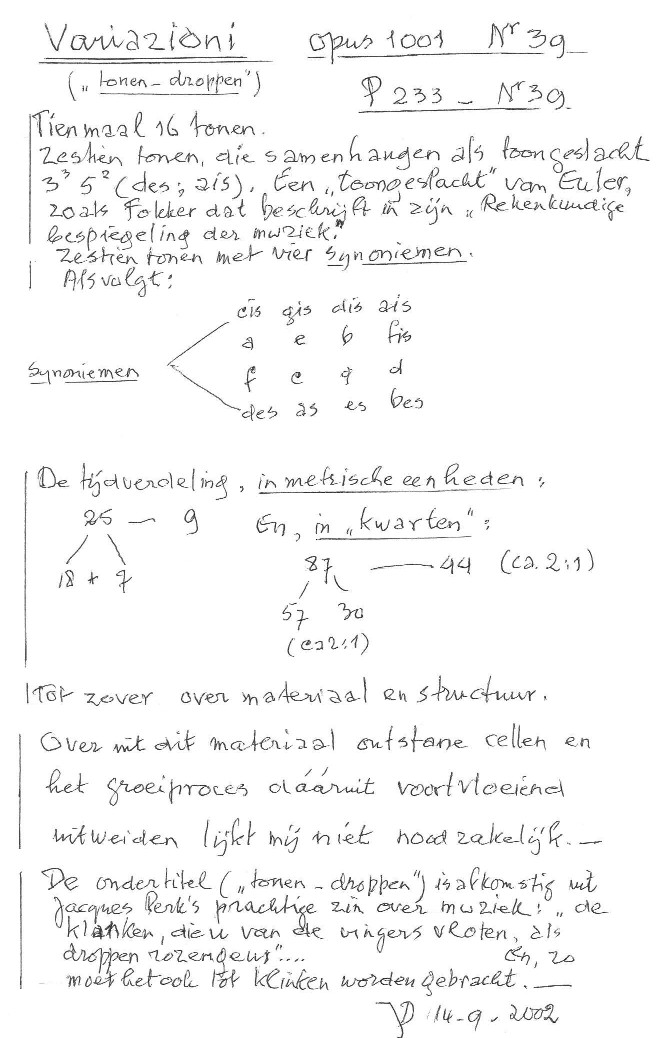 Variazioni opus 1001 Nr 39
(„tonen-droppen") P 233 - Nr 39
Tienmaal 16 tonen.
Zestien tonen, die samenhangen als toongeslacht
3³ 5² (des; ais). Een „toongeslacht" van Euler,
zoals Fokker dat beschrijft in zijn „Rekenkundige
bespiegeling der muziek."
Zestien tonen met vier synoniemen.
Als volgt:
cis gis dis ais
a e b fis
synoniemen
f c g d
des as es bes
De tijdverdeling, in metrische eenheden:
25 — 9 En, in „kwarten":
18 + 7 87 — 44 (ca. 2:1)
57 30
(ca 2:1)
Tot zover over materiaal en structuur.
Over uit dit materiaal ontstane cellen en
het groeiproces dááruit voortvloeiend
uitweiden lijkt mij niet noodzakelijk. —
De ondertitel („tonen-droppen") is afkomstig uit
Jacques Perk's prachtige zin over muziek: „de
klanken, die u van de vingers vloten, als
droppen rozengeur".... En, zo
moet het ook tot klinken worden gebracht. —
14-9-2002